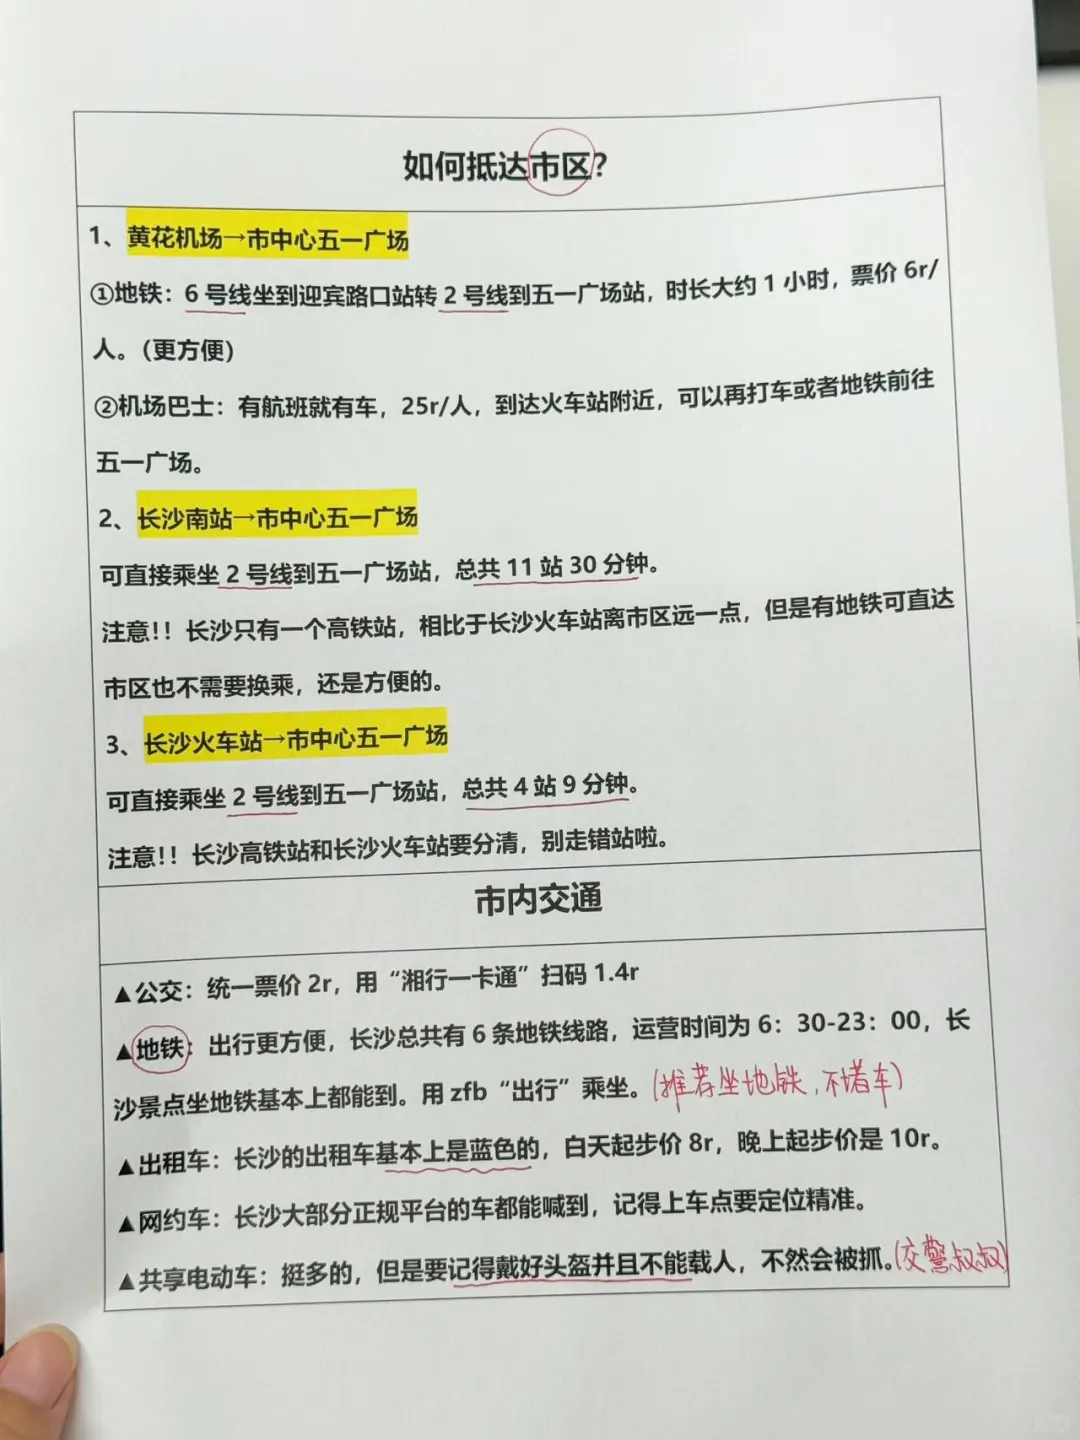 如何抵达市区?
1、黄花机场→市中心五一广场
①地铁：6 号线坐到迎宾路口站转 2 号线到五一广场站，时长大约 1 小时，票价 6r/
人。（更方便）
②机场巴士：有航班就有车，25r/人，到达火车站附近，可以再打车或者地铁前往
五一广场。
2、长沙南站→市中心五一广场
可直接乘坐 2 号线到五一广场站，总共 11 站 30 分钟。
注意!！长沙只有一个高铁站，相比于长沙火车站离市区远一点，但是有地铁可直达
市区也不需要换乘，还是方便的。
3、长沙火车站→市中心五一广场
可直接乘坐 2 号线到五一广场站，总共 4 站 9 分钟。
注意!！长沙高铁站和长沙火车站要分清，别走错站啦。
市内交通
▲公交：统一票价 2r，用“湘行一卡通”扫码 1.4r
▲地铁：出行更方便，长沙总共有 6 条地铁线路，运营时间为 6：30-23：00，长
沙景点坐地铁基本上都能到。用 zfb“出行”乘坐。(推荐坐地铁，不堵车)
▲出租车：长沙的出租车基本上是蓝色的，白天起步价 8r，晚上起步价是 10r。
▲网约车：长沙大部分正规平台的车都能喊到，记得上车点要定位精准。
▲共享电动车：挺多的，但是要记得戴好头盔并且不能载人，不然会被抓。(交警叔叔)